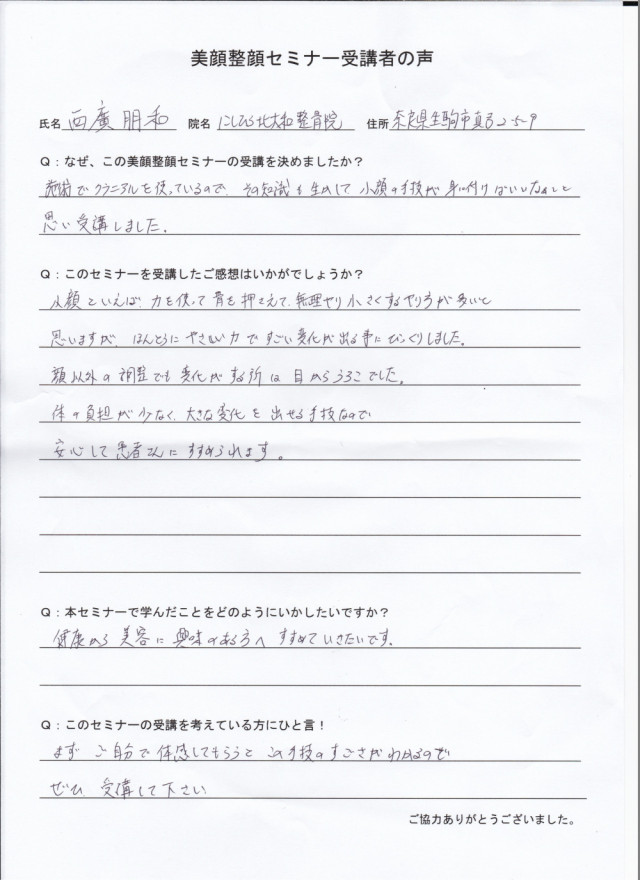 美顔整顔セミナー受講者の声
氏名 西廣朋和 院名 にしひろ北大和整骨院 住所 奈良県生駒市真弓2-5-9
Q：なぜ、この美顔整顔セミナーの受講を決めましたか？
施術でクラニアルを使っているので、その知識を生かして小顔の手技が身に付けばいいなぁと
思い受講しました。
Q：このセミナーを受講したご感想はいかがでしょうか？
小顔といえば、力を使って骨を押さえて、無理ヤリ小さくするやり方が多いと
思いますが、ほんとうにやさしい力ですごい変化が出る事にびっくりしました。
顔以外の調整でも変化がする所は目からうろこでした。
体の負担が少なく、大きな変化を出せる手技なので
安心して患者さんにすすめられます。
Q：本セミナーで学んだことをどのようにいかしたいですか？
健康から美容に興味のある方へすすめていきたいです。
Q：このセミナーの受講を考えている方にひと言！
まずご自分で体感してもらうとこの手技のすごさがわかるので
ぜひ、受講して下さい
ご協力ありがとうございました。